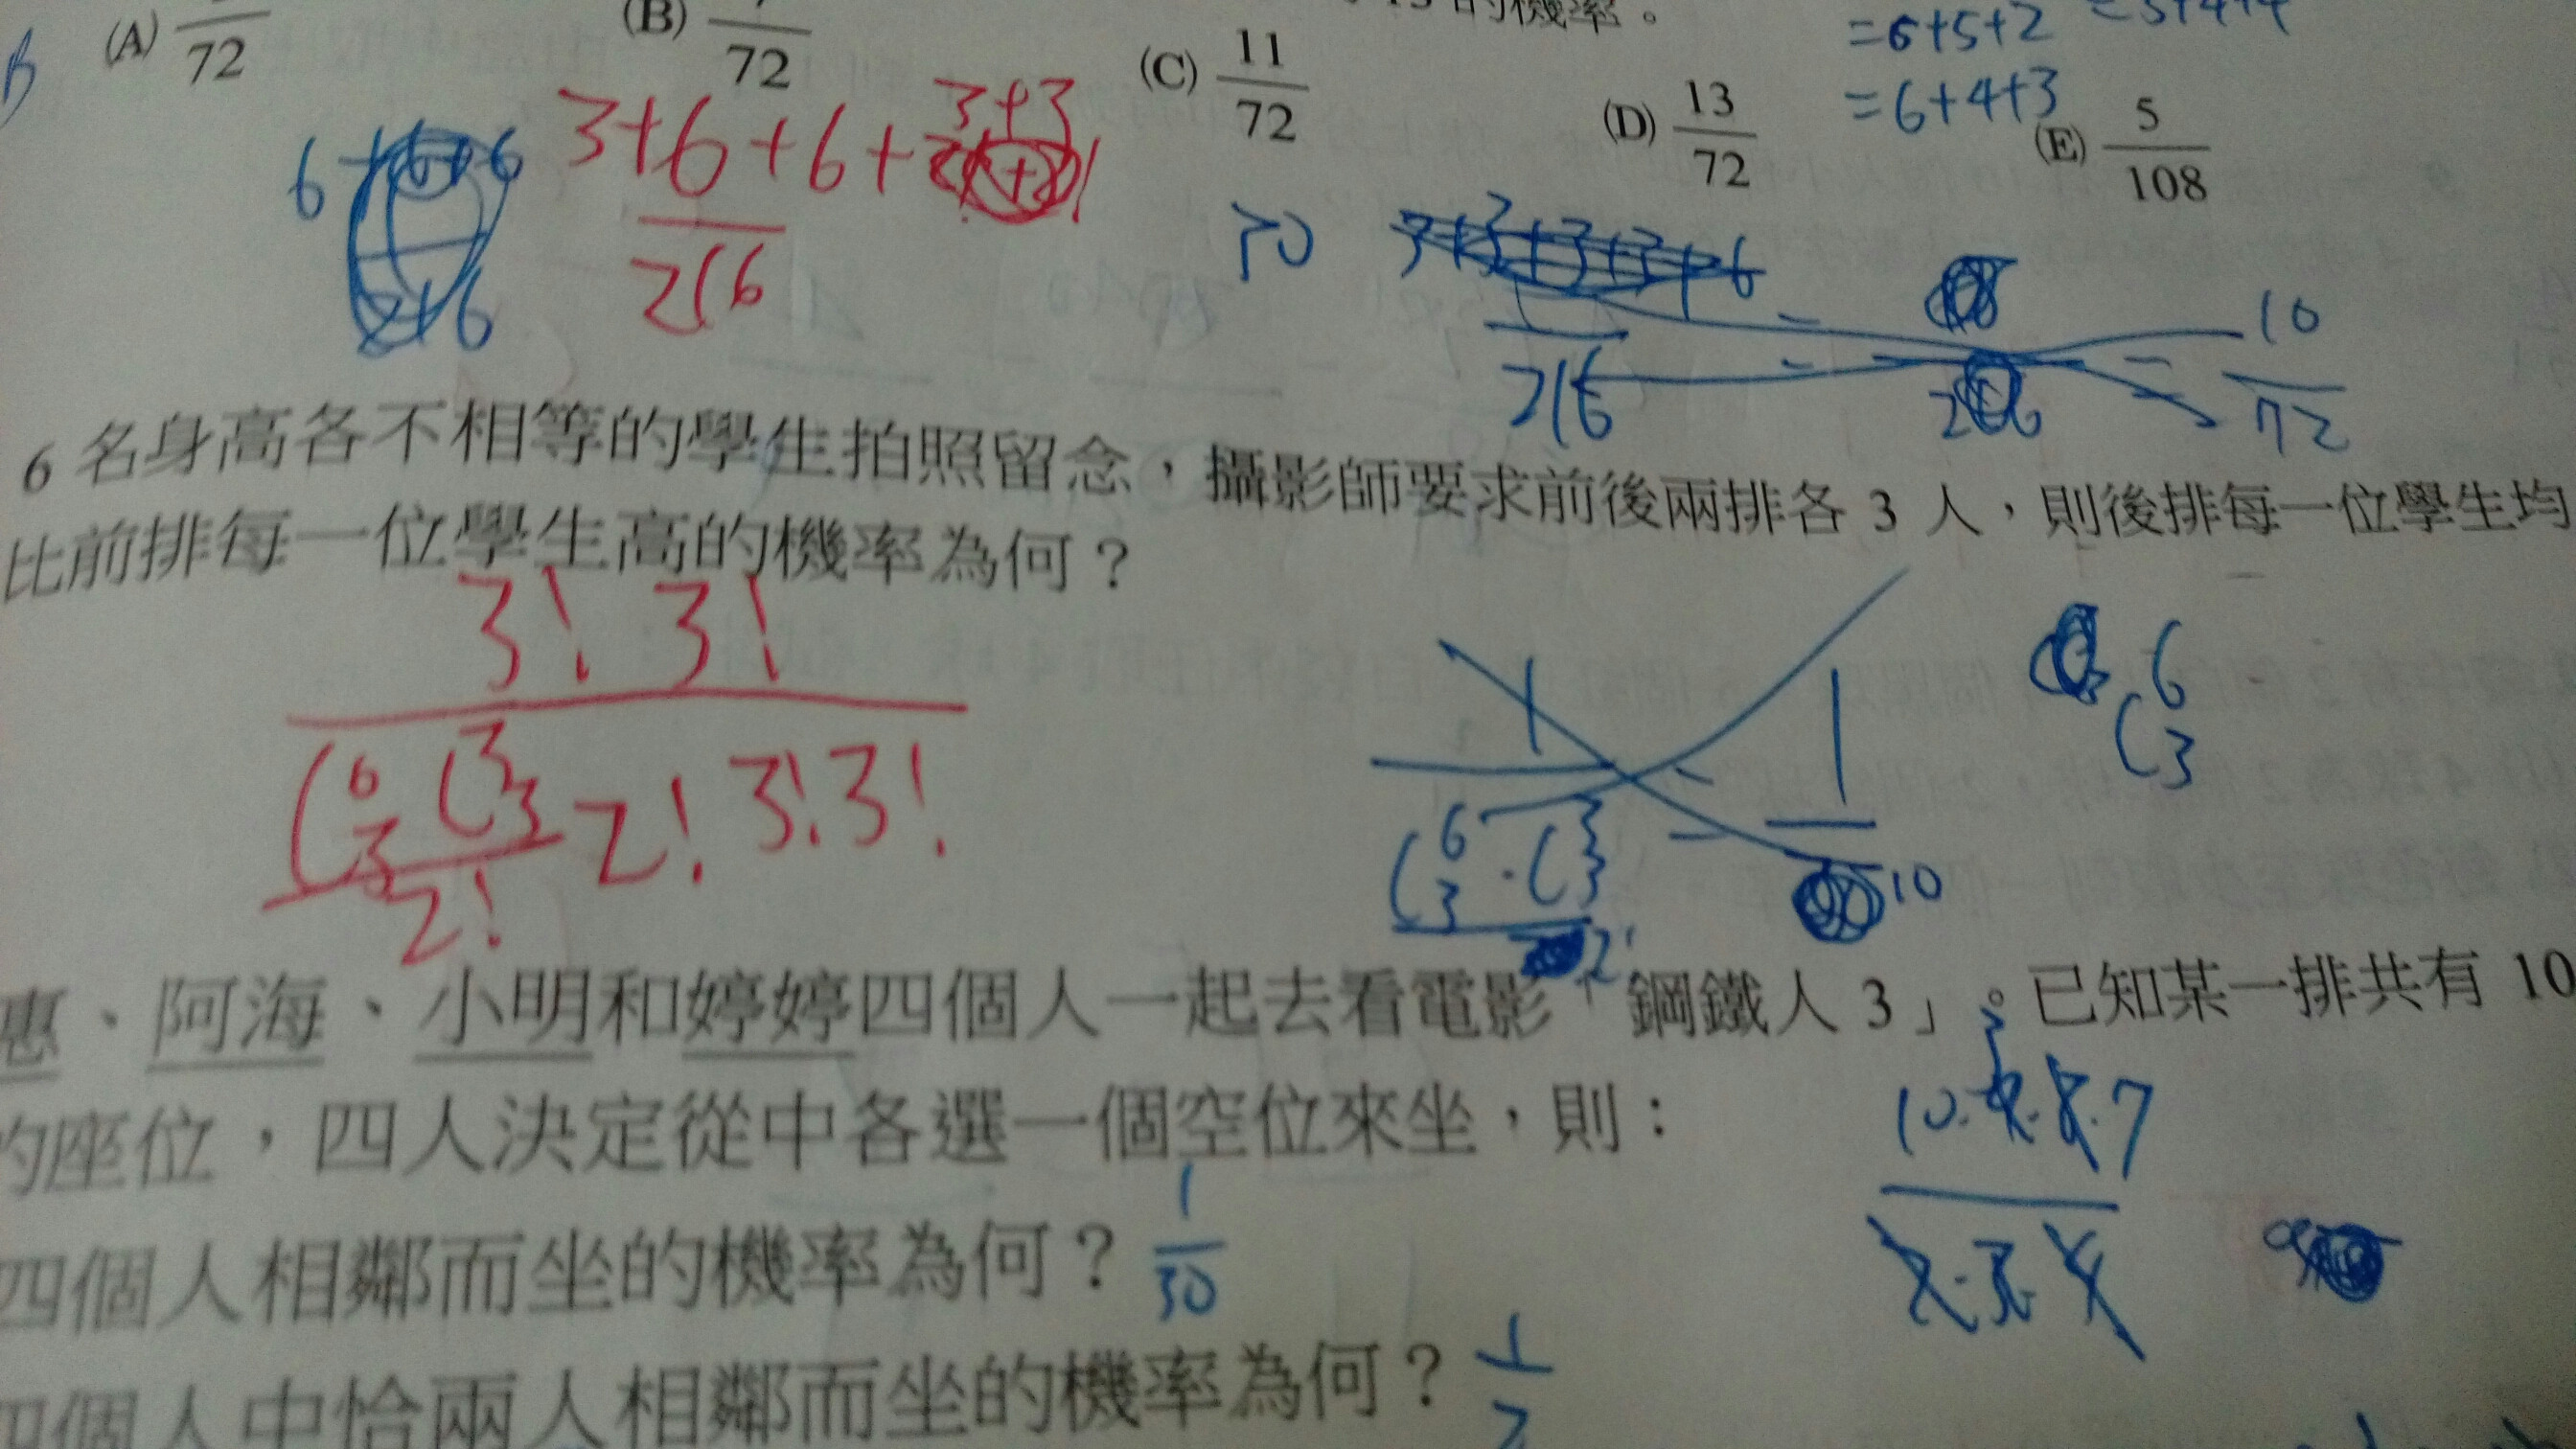 的機率。
= 6+5+2
= 6+4+3
(A) 72
(B) 72
(C) 11/72
(D) 13/72
(E) 5/108
3+6+6+3+3+1
216
70
216
10
72
6 名身高各不相等的學生拍照留念，攝影師要求前後兩排各 3 人，則後排每一位學生均
比前排每一位學生高的機率為何？
3! 3!
C 6 3 C 3 3 2! 3! 3!
2!
1
1
C 6 3 · C 3 3
10
2!
C 6 3
惠、阿海、小明和婷婷四個人一起去看電影「鋼鐵人 3」。已知某一排共有 10
的座位，四人決定從中各選一個空位來坐，則：
10·9·8·7
2·3·4
四個人相鄰而坐的機率為何？ 1/30
四個人中恰兩人相鄰而坐的機率為何？ 1/2